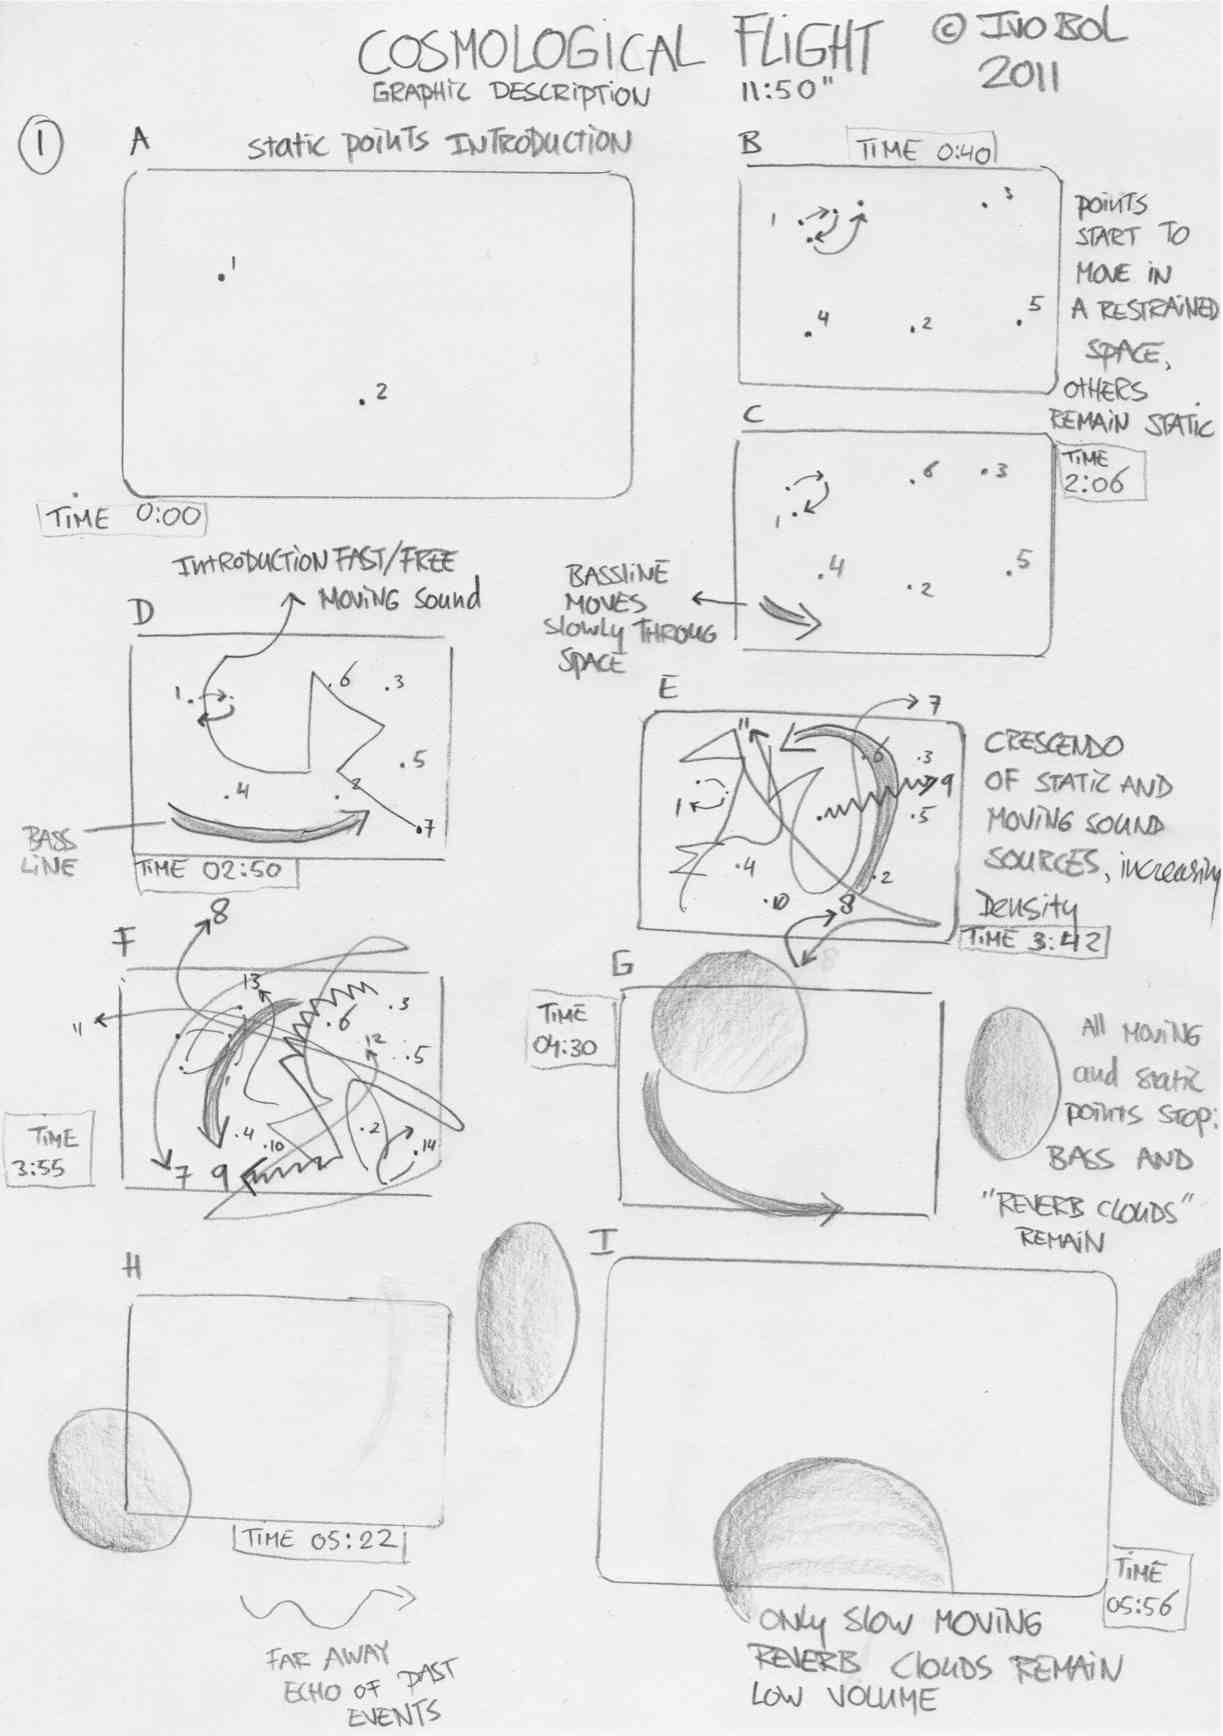 COSMOLOGICAL FLIGHT
© IVO BOL
2011
GRAPHIC DESCRIPTION
11:50"
1
A
static points INTRODUCTION
1
2
TIME 0:00
B
TIME 0:40
1
3
4
2
5
POINTS
START TO
MOVE IN
A RESTRAINED
SPACE,
OTHERS
REMAIN STATIC
C
TIME
2:06
6
3
1
4
2
5
BASSLINE
MOVES
Slowly THROUG
SPACE
INTRODUCTION FAST/FREE
MOVING Sound
D
1
6
3
5
4
2
7
BASS
LINE
TIME 02:50
E
7
11
6
3
9
1
5
4
2
10
8
CRESCENDO
OF STATIC AND
MOVING SOUND
SOURCES, increasing
Density
TIME 3:42
F
8
13
3
6
11
12
5
4
10
2
14
7
9
TIME
3:55
G
TIME
04:30
All MOVING
and static
points STOP:
BASS AND
"REVERB CLOUDS"
REMAIN
H
TIME 05:22
FAR AWAY
ECHO OF PAST
EVENTS
I
TIME
05:56
ONLY SLOW MOVING
REVERB CLOUDS REMAIN
LOW VOLUME